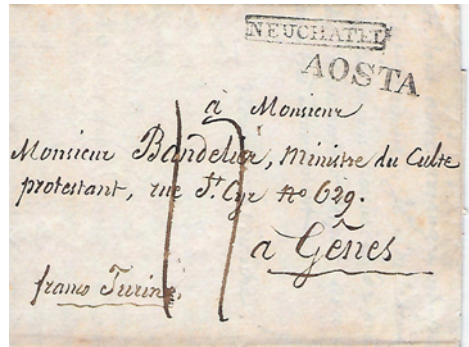 NEUCHATEL
AOSTA
à Monsieur
Monsieur Bandelier, Ministre du Culte
protestant, rue St. Cyr No 629.
à Gênes
franco Turin